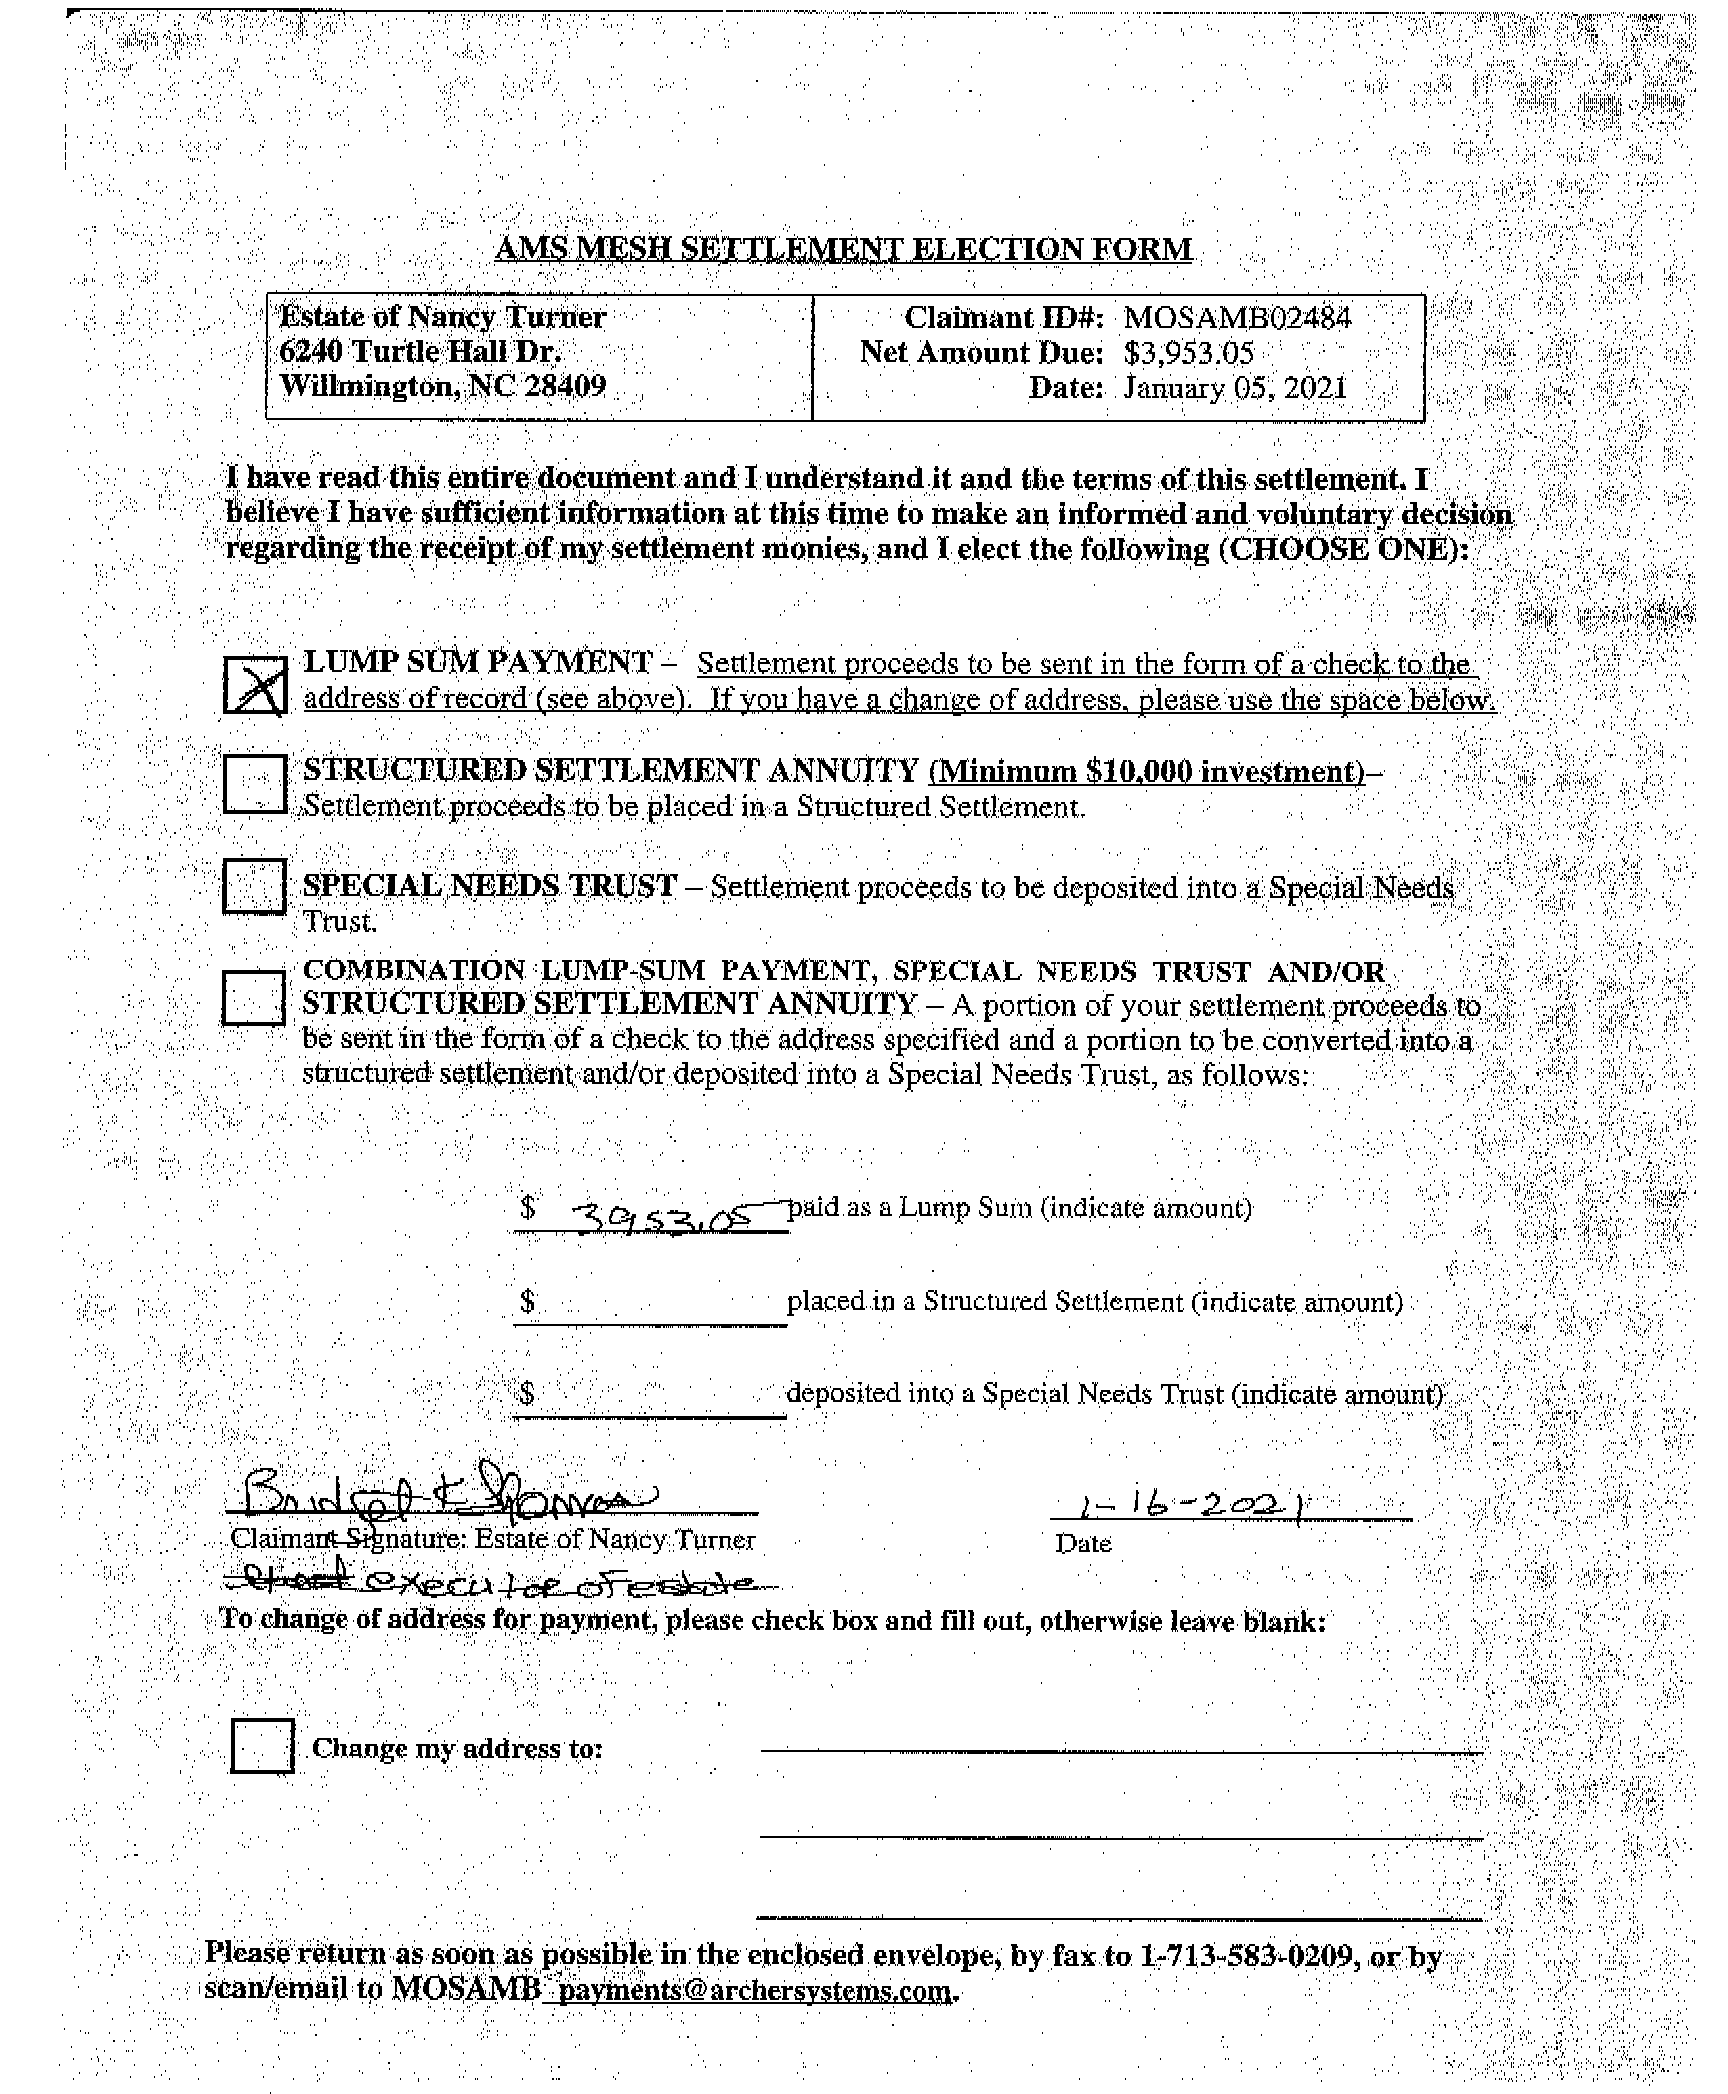 AMS MESH SETTLEMENT ELECTION FORM
Estate of Nancy Turner
6240 Turtle Hall Dr.
Willmington, NC 28409
Claimant ID#: MOSAMB02484
Net Amount Due: $3,953.05
Date: January 05, 2021
I have read this entire document and I understand it and the terms of this settlement. I
believe I have sufficient information at this time to make an informed and voluntary decision
regarding the receipt of my settlement monies, and I elect the following (CHOOSE ONE):
LUMP SUM PAYMENT – Settlement proceeds to be sent in the form of a check to the
address of record (see above). If you have a change of address, please use the space below.
STRUCTURED SETTLEMENT ANNUITY (Minimum $10,000 investment)–
Settlement proceeds to be placed in a Structured Settlement.
SPECIAL NEEDS TRUST – Settlement proceeds to be deposited into a Special Needs
Trust.
COMBINATION LUMP-SUM PAYMENT, SPECIAL NEEDS TRUST AND/OR
STRUCTURED SETTLEMENT ANNUITY – A portion of your settlement proceeds to
be sent in the form of a check to the address specified and a portion to be converted into a
structured settlement and/or deposited into a Special Needs Trust, as follows:
$ 3953.05 paid as a Lump Sum (indicate amount)
$ placed in a Structured Settlement (indicate amount)
$ deposited into a Special Needs Trust (indicate amount)
Bridget K Thomas
1-16-2021
Claimant Signature: Estate of Nancy Turner
Date
executor of estate
To change of address for payment, please check box and fill out, otherwise leave blank:
Change my address to:
Please return as soon as possible in the enclosed envelope, by fax to 1-713-583-0209, or by
scan/email to MOSAMB payments@archersystems.com.